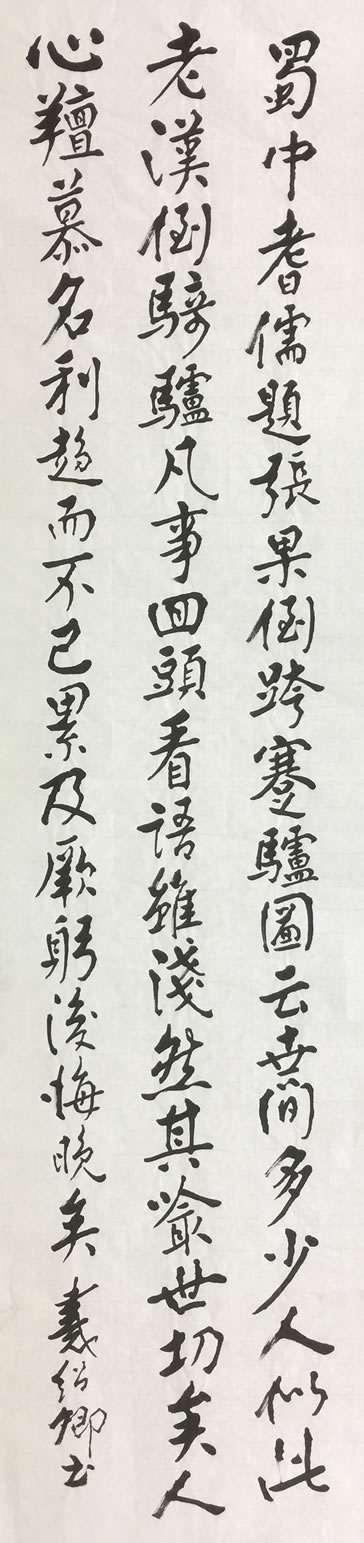 蜀中耆儒題張果倒跨蹇驢圖云世間多少人似此
老漢倒騎驢凡事回頭看語雖淺然其喻世切矣人
心羶慕名利趨而不已累及厥躬後悔晚矣 卿书